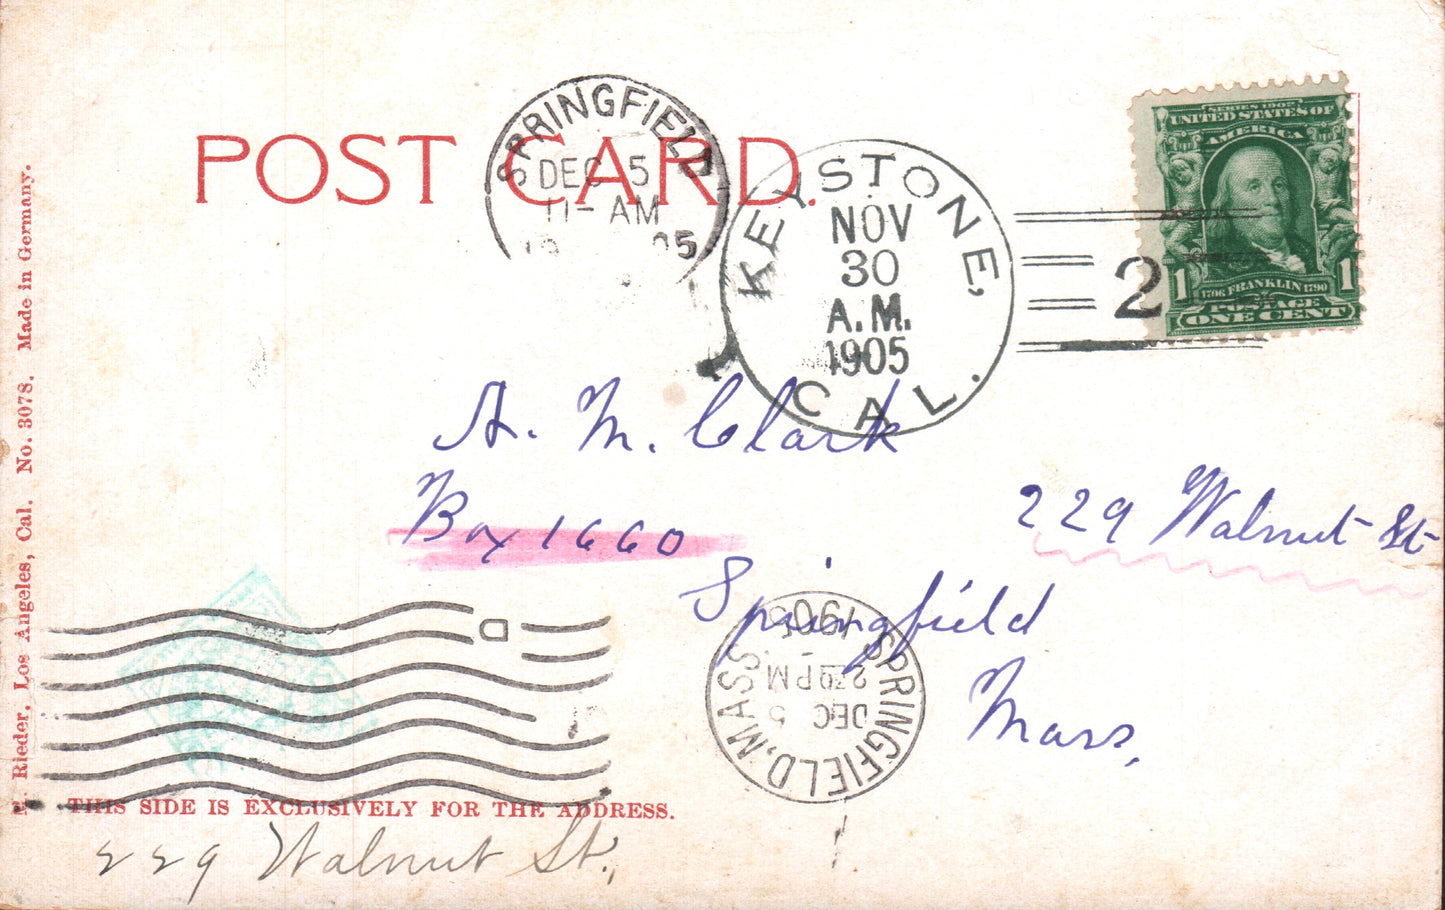 POST CARD.
SPRINGFIELD
DEC 5
11-AM
KEYSTONE,
NOV
30
A.M.
1905
CAL.
2
SERIES 1902
UNITED STATES OF
AMERICA
1706 FRANKLIN 1790
1 1
POSTAGE
ONE CENT
A. M. Clark
Box 1660
229 Walnut St
Springfield
Mass.
D
SPRINGFIELD, MASS
DEC 5
230 PM
1905
M. Rieder, Los Angeles, Cal. No. 3078. Made in Germany.
THIS SIDE IS EXCLUSIVELY FOR THE ADDRESS.
229 Walnut St.,